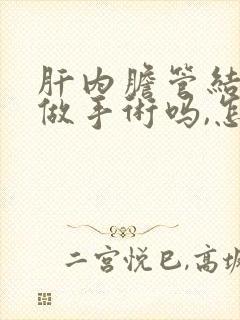 肝内膽管結
做手術吗,怎
二宫悦巳,高坂